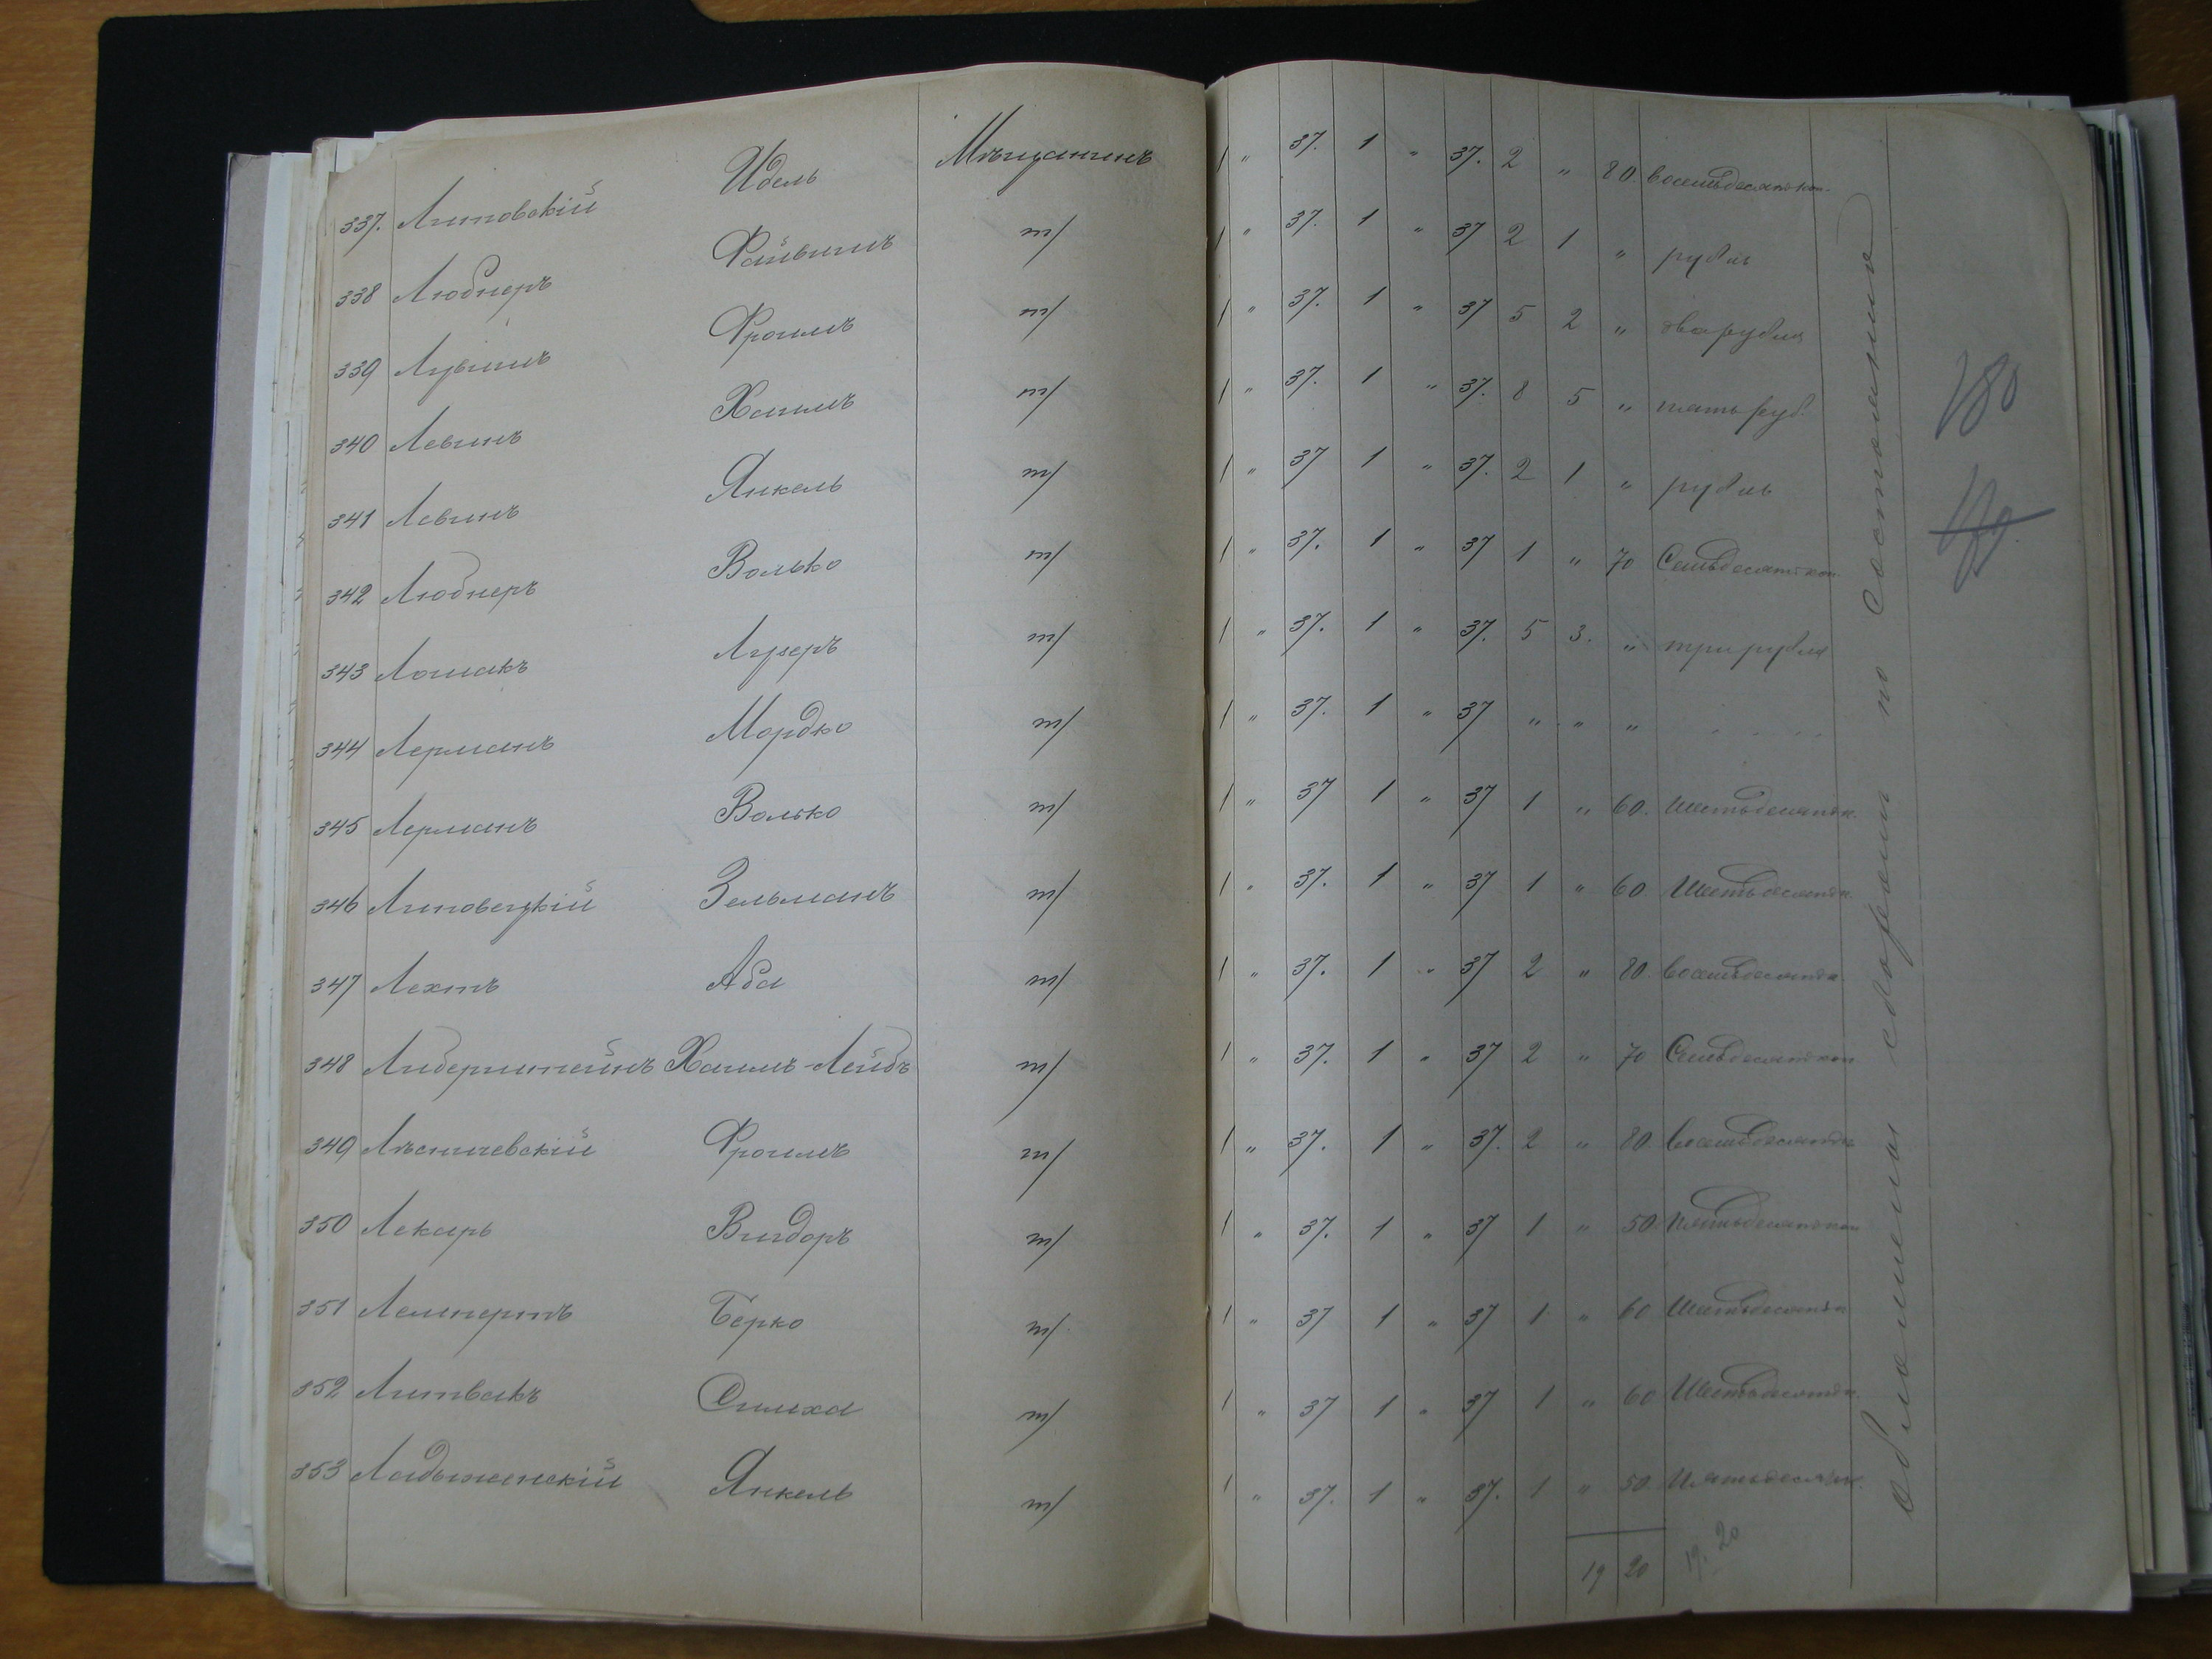 337. Липовскій Идель Мѣщанинъ 1 " 37. 1 " 37. 2 " 80. восемьдесятъ коп.
338 Людмеръ Файвишъ т/ 1 " 37. 1 " 37 2 1 " рубль
339 Лузинъ Фроимъ т/ 1 " 37. 1 " 37 5 2 " два рубля
340 Левинъ Хаимъ т/ 1 " 37. 1 " 37. 8 5 " пять руб.
341 Левинъ Янкель т/ 1 " 37 1 " 37. 2 1 " рубль
342 Людмеръ Волько т/ 1 " 37. 1 " 37 1 " 70 Семьдесятъ коп.
343 Лошакъ Лузеръ т/ 1 " 37. 1 " 37. 5 3. " три рубля
344 Лерманъ Мордко т/ 1 " 37. 1 " 37 " " "
345 Лерманъ Волько т/ 1 " 37 1 " 37 1 " 60. Шестьдесятъ к.
346 Липовецкій Зельманъ т/ 1 " 37. 1 " 37 1 " 60. Шестьдесятъ к.
347 Лехтъ Аба т/ 1 " 37. 1 " 37 2 " 80. восемьдесятъ к.
348 Либерштейнъ Хаимъ-Лейбъ т/ 1 " 37. 1 " 37 2 " 70 Семьдесятъ коп
349 Лѣстичевскій Фроимъ т/ 1 " 37. 1 " 37. 2 " 80. восемьдесятъ к
350 Лекарь Вигдоръ т/ 1 " 37. 1 " 37 1 " 50. Пятьдесятъ коп
351 Лемпертъ Берко т/ 1 " 37 1 " 37 1 " 60 Шестьдесятъ к
352 Литвакъ Симха т/ 1 " 37 1 " 37 1 " 60 Шестьдесятъ к.
353 Ладыженскій Янкель т/ 1 " 37. 1 " 37. 1 " 50. Пятьдесятъ к.
19 20
19. 20
Обложены сборомъ по Состоянію
180